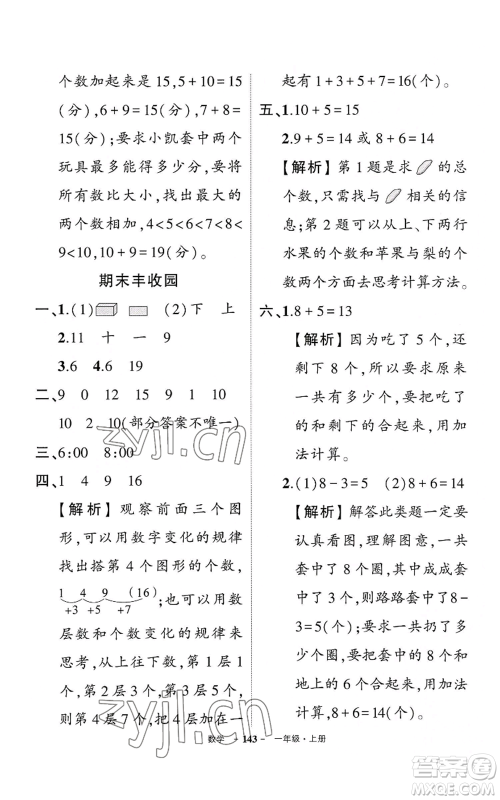 个数加起来是 15,5+10=15
(分),6+9=15(分),7+8=
15(分);要求小凯套中的两个
玩具最多能得多少分,需要将
所有数比大小,找出最大的两
个数相加,4<5<6<7<8<
9<10,9+10=19(分)。
期末丰收园
一、1.(1) (2)下 上
2.11 十 一 9
3.6 4.6 19
二、9 0 12 15 9 10
10 2 10(部分答案不唯一)
三、6:00 8:00
四、1 4 9 16
【解析】观察前面三个图
形,可以用数字变化的规律
找出搭第 4 个图形的个数,
1 4 9 (16)
+3 +5 +7
;也可以用数
层数和个数变化的规律来
思考,从上往下数,第 1 层 1
个,第 2 层 3 个,第 3 层 5 个,
则第 4 层 7 个,把 4 层加在一
起有 1+3+5+7=16(个)。
五、1.10+5=15
2.9+5=14 或 8+6=14
【解析】第 1 题是求 的总
个数,只需找与 相关的信
息;第 2 题可以从上、下两行
水果的个数和苹果与梨的个
数两个方面去思考计算方法。
六、1.8+5=13
【解析】因为吃了 5 个,还
剩下 8 个,所以要求原来
一共有多少个,要把吃了
的和剩下的合起来,用加
法计算。
2.(1)8-3=5 (2)8+6=14
【解析】解答此类题一定要
认真看图,理解图意,一共
套中了 8 个,成成套中了 3
个,则路路套中了 8-
3=5(个);要求一共扔了多
少个圈,要把套中的 8 个和
地上的 6 个合起来,用加法
计算。
zyjl.cn
zyjl.cn
数学 - 143 - 一年级·上册